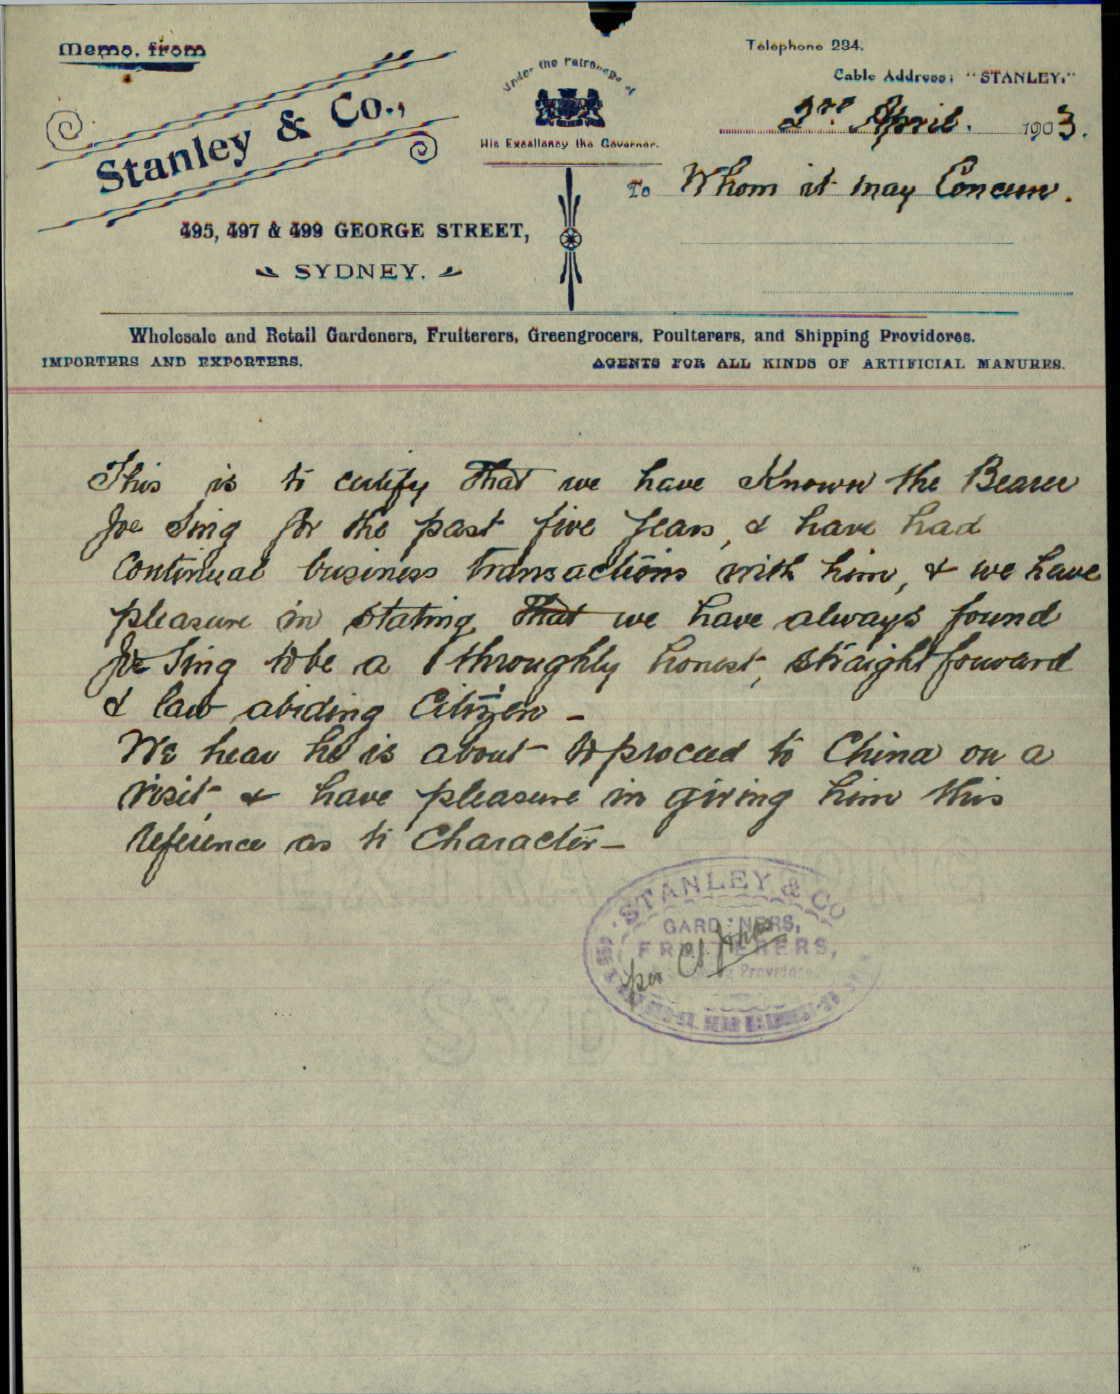 Memo. from
Stanley & Co.,
495, 497 & 499 GEORGE STREET,
SYDNEY.
Under the Patronage of
His Excellency the Governor.
Telephone 234.
Cable Address: "STANLEY."
2nd April. 1903.
To Whom it may Concern.
Wholesale and Retail Gardeners, Fruiterers, Greengrocers, Poulterers, and Shipping Providores.
IMPORTERS AND EXPORTERS. AGENTS FOR ALL KINDS OF ARTIFICIAL MANURES.
This is to certify that we have Known the Bearer
Joe Sing for the past five years, & have had
Continual business transactions with him, & we have
pleasure in stating that we have always found
Joe Sing to be a throughly honest, straightforward
& law abiding Citizen -
We hear he is about to proceed to China on a
visit & have pleasure in giving him this
reference as to Character -
STANLEY & CO
GARDINERS,
FRUITERERS,
Providores
per